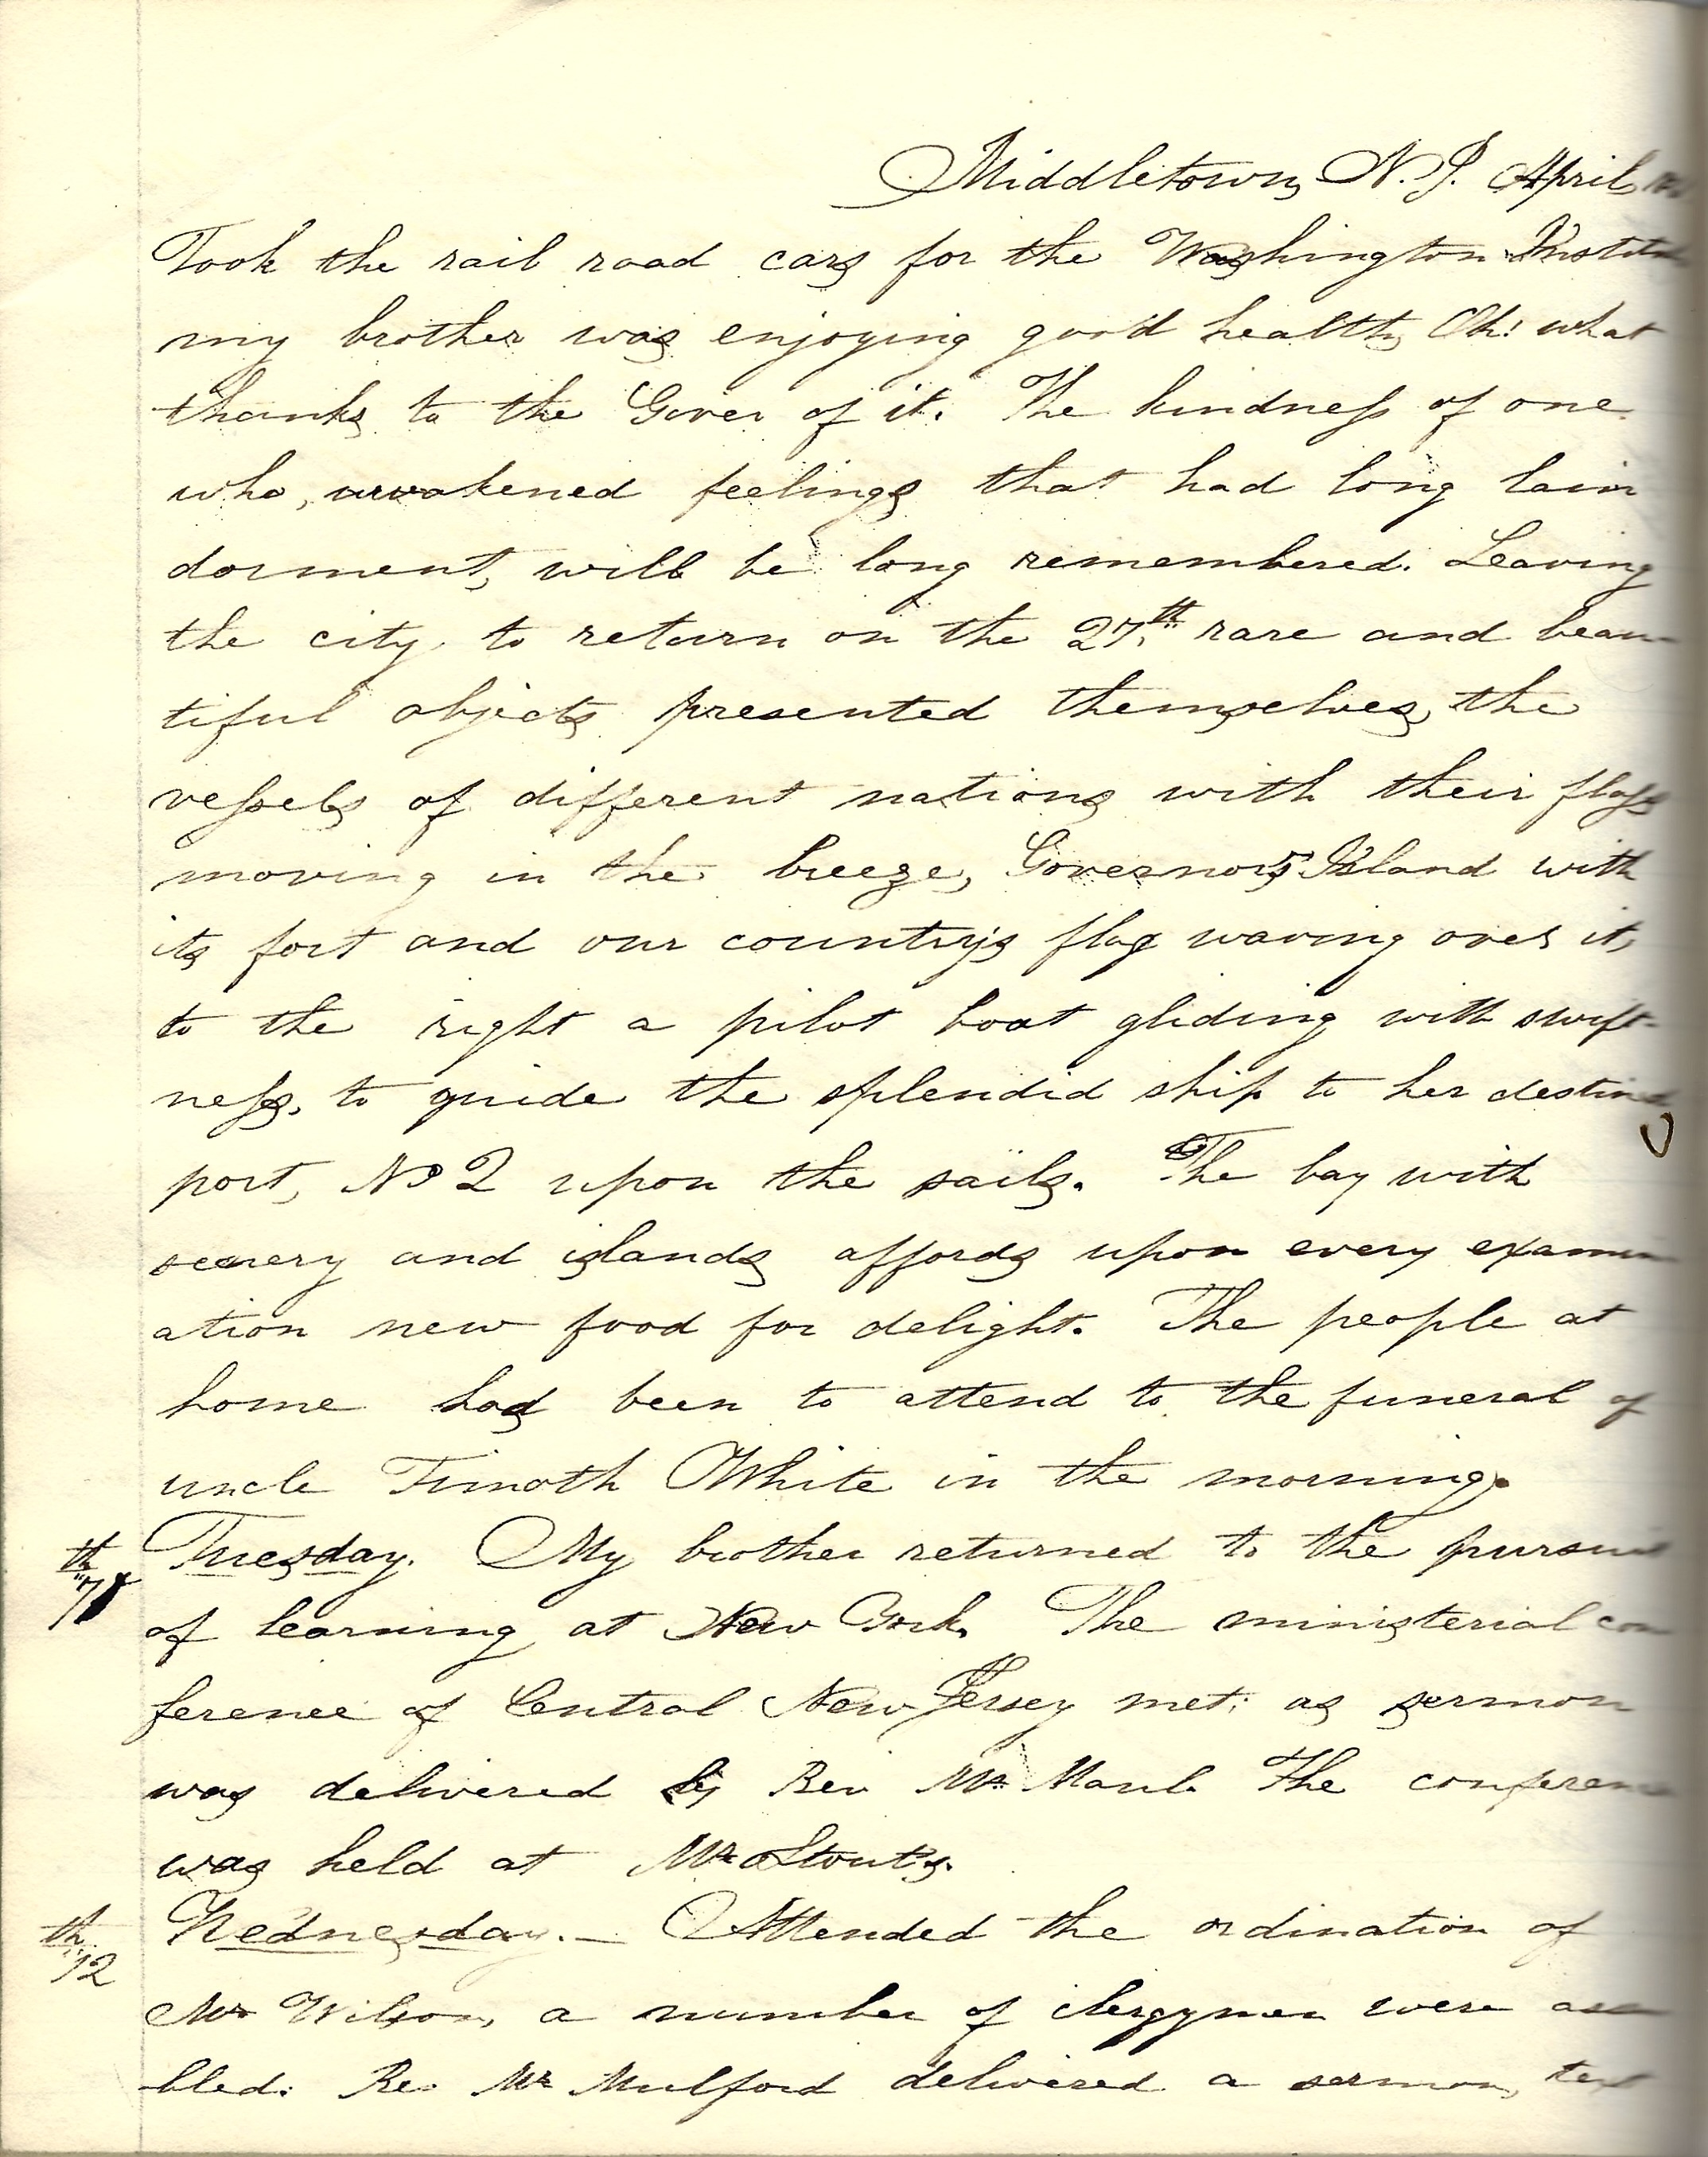 Middletown, N. J. April
Took the rail road cars for the Washington Institu
my brother was enjoying good health, Oh! what
thanks to the Giver of it. The kindness of one
who, awakened feelings that had long lain
dorment, will be long remembered. Leaving
the city, to return on the 27th rare and beau-
tiful objects presented themselves, the
vessels of different nations with their flags
moving in the breeze, Governor's Island with
its fort and our country's flag waving over it,
to the right a pilot boat gliding with swift-
ness, to guide the splendid ship to her destined
port, No 2 upon the sails. The bay with
scenery and islands affords upon every examin
ation new food for delight. The people at
home had been to attend to the funeral of
uncle Timoth White in the morning.
th Tuesday. My brother returned to the pursuit
of learning at New York. The ministerial con
ference of Central New Jersey met; as sermon
was delivered by Rev Mr Maul. The conferenc
was held at Mr Stout's.
th 12 Wednesday. — Attended the ordination of
Mr Wilson, a number of clergymen were assem
bled: Re. Mr Mulford delivered a sermon, text